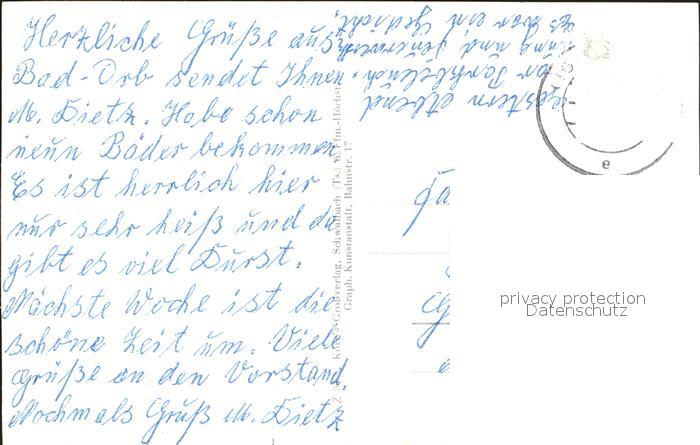 Herzliche Grüße aus
Bad-Orb sendet Ihnen
M. Dietz. Habe schon
neun Bäder bekommen
Es ist herrlich hier
nur sehr heiß und da
gibt es viel Durst.
Nächste Woche ist die
schöne Zeit um. Viele
Grüße an den Vorstand.
Nochmals Gruß M. Dietz
Gestern Abend
war Parkbeleuch-
tung und Feuerwerk
es war ein Gedicht.
Großverlag, Schwalbach (Ts.) b. Ffm.-Höchst
Graph. Kunstanstalt, Bahnstr. 17
Fa
e
privacy protection
Datenschutz